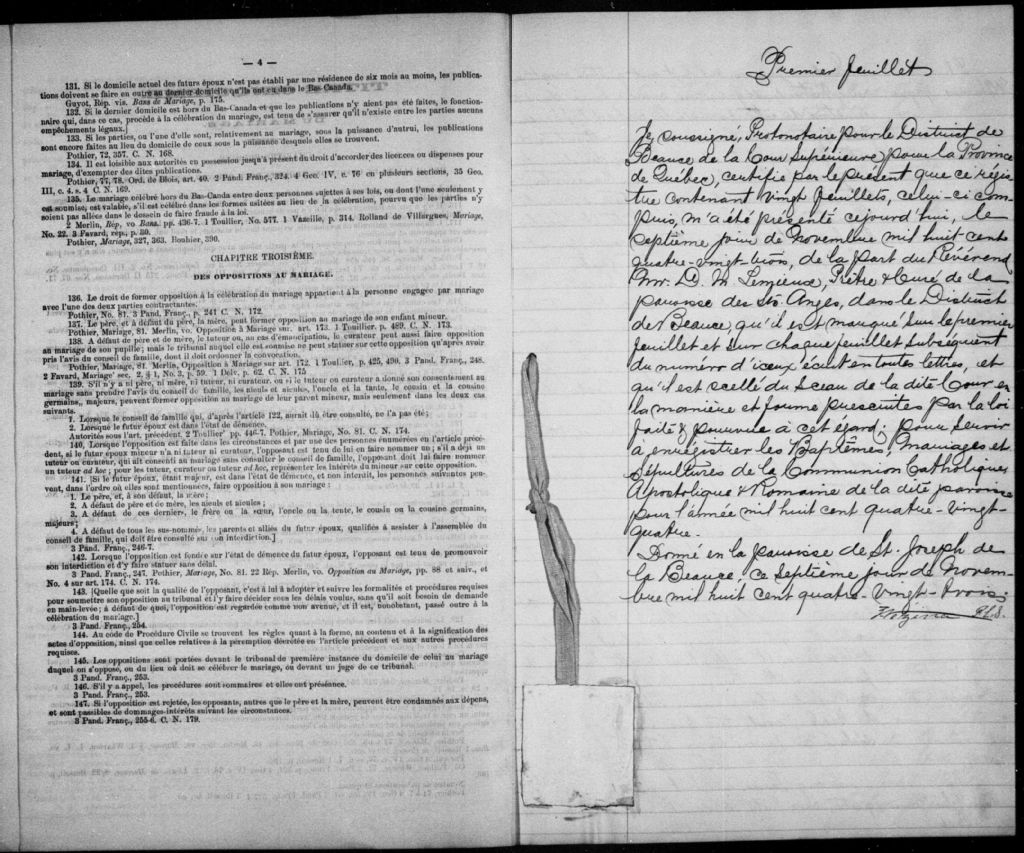 — 4 —
131. Si le domicile actuel des futurs époux n'est pas établi par une résidence de six mois au moins, les publica-
tions doivent se faire en outre au dernier domicile qu'ils ont eu dans le Bas-Canada.
Guyot, Rép. vis. Bans de Mariage, p. 175.
132. Si le dernier domicile est hors du Bas-Canada et que les publications n'y aient pas été faites, le fonction-
naire qui, dans ce cas, procède à la célébration du mariage, est tenu de s'assurer qu'il n'existe entre les parties aucuns
empêchements légaux.]
133. Si les parties, ou l'une d'elles, sont, relativement au mariage, sous la puissance d'autrui, les publications
sont encore faites au lieu du domicile de ceux sous la puissance desquels elles se trouvent.
Pothier, 72, 357. C. N. 168.
134. Il est loisible aux autorités en possession jusqu'à présent du droit d'accorder des licences ou dispenses pour
mariage, d'exempter des dites publications.
Pothier, 77, 78. Ord. de Blois, art. 40. 2 Pand. Franç., 324. 4 Geo. IV, c. 76 en plusieurs sections, 35 Geo.
III, c. 4. s. 4 C. N. 169.
135. Le mariage célébré hors du Bas-Canda entre deux personnes sujettes à ses lois, ou dont l'une seulement y
est soumise, est valable, s'il est célébré dans les formes usitées au lieu de la célébration, pourvu que les parties n'y
soient pas allées dans le dessein de faire fraude à la loi.
2 Merlin, Rép, vo Bans. pp. 436-7. 1 Toullier, No. 577. 1 Vazeille, p. 314. Rolland de Villargues, Mariage,
No. 22. 3 Favard, rép.; p. 80.
Pothier, Mariage, 327, 363. Bouhier, 390.
CHAPITRE TROISIÈME.
DES OPPOSITIONS AU MARIAGE.
136. Le droit de former opposition à la célébration du mariage appartient à la personne engagée par mariage
avec l'une des deux parties contractantes.
Pothier, No. 81. 3 Pand. Franç., p. 241 C. N., 172.
137. Le père, et à défaut du père, la mère, peut former opposition au mariage de son enfant mineur.
Pothier, Mariage, 81. Merlin, vo. Opposition à Mariage sur. art. 173. 1 Toullier. p. 489. C. N. 173.
138. A défaut de père et de mère, le tuteur ou, au cas d'émancipation, le curateur peut aussi faire opposition
au mariage de son pupille; mais le tribunal auquel elle est soumise ne peut statuer sur cette opposition qu'après avoir
pris l'avis du conseil de famille, dont il doit ordonner la convocation.
Pothier, Mariage, 81. Merlin, Opposition à Mariage sur art. 172. 1 Toullier, p. 425, 490. 3 Pand. Franç., 248.
2 Favard, Mariage' sec. 2, § 1, No. 3, p. 59. 1 Delv. p. 62. C. N. 175
139. S'il n'y a ni père, ni mère, ni tuteur, ni curateur, ou si le tuteur ou curateur a donné son consentement au
mariage sans prendre l'avis du conseil de famille, les aïeuls et aïeules, l'oncle et la tante, le cousin et la cousine
germains,, majeurs, peuvent former opposition au mariage de leur parent mineur, mais seulement dans les deux cas
suivants.
1. Lorsque le conseil de famille qui, d'après l'article 122, aurait dû être consulté, ne l'a pas été;
2. Lorsque le futur époux est dans l'état de démence.
Autorités sous l'art. précédent. 2 Toullier' pp. 446-7. Pothier, Mariage, No. 81. C. N. 174.
140, Lorsque l'opposition est faite dans les circonstances et par une des personnes énumérées en l'article précé-
dent, si le futur époux mineur n'a ni tuteur ni curateur, l'opposant est tenu de lui en faire nommer un; s'il a déjà un
tuteur ou curateur, qui ait consenti au mariage sans consulter le conseil de famille, l'opposant doit lui faire nommer
un tuteur ad hoc; pour les tuteur, curateur ou tuteur ad hoc, représenter les intérêts du mineur sur cette opposition.
141. [Si le futur époux, étant majeur, est dans l'état de démence, et non interdit, les personnes suivantes peu-
vent, dans l'ordre où elles sont mentionnées, faire opposition à son mariage:
1. Le père, et, à son défaut, la mère;
2. A défaut de père et de mère, les aïeuls et aïeules;
3. A défaut de ces dernier, le frère ou la sœur, l'oncle ou la tente, le cousin ou la cousine germains,
majeurs;
4. A défaut de tous les sus-nommés, les parents et alliés du futur époux, qualifiés à assister à l'assemblée du
conseil de famille, qui doit être consulté sur son interdiction.]
3 Pand. Franç., 246-7.
142. Lorsque l'opposition est fondée sur l'état de démence du futur époux, l'opposant est tenu de promouvoir
son interdiction et d'y faire statuer sans délai.
3 Pand. Franç., 247. Pothier, Mariage, No. 81. 22 Rép. Merlin, vo. Opposition au Mariage, pp. 88 et suiv., et
No. 4 sur art. 174. C. N. 174.
143. [Quelque que soit la qualité de l'opposant, c'est à lui à adopter et suivre les formalités et procédures requises
pour soumettre son opposition au tribunal et l'y faire décider sous les délais voulus, sans qu'il soit besoin de demande
en main-levée; à défaut de quoi, l'opposition est regardée comme non avenue, et il est, nonobstant, passé outre à la
célébration du mariage.]
3 Pand. Franç., 254.
144. Au code de Procédure Civile se trouvent les règles quant à la forme, au contenu et à la signification des
actes d'opposition, ainsi que celles relatives à la péremption décrétée en l'article précédent et aux autres procédures
requises.
145. Les oppositions sont portées devant le tribunal de première instance du domicile de celui au mariage
duquel on s'oppose, ou du lieu où doit se célébrer le mariage, ou devant un juge de ce tribunal.
3 Pand. Franç., 253.
146. S'il y a appel, les procédures sont sommaires et elles ont préséance.
3 Pand. Franç., 253.
147. Si l'opposition est rejetée, les opposants, autres que le père et la mère, peuvent être condamnés aux dépens,
et sont passibles de dommages-intérêts suivant les circonstances.
3 Pand. Franç., 255-6. C. N. 179.
Premier feuillet
Je, soussigné, Protonotaire pour le District de
Beauce de la Cour Supérieure, pour la Province
de Québec, certifie par le présent que ce régis-
tre contenant vingt feuillets, celui-ci com-
puis, m'a été présenté cejourd'hui, le
septième jour de Novembre mil huit cent
quatre-vingt-trois, de la part du Révérend
Mr. D. M. Lemieux, Prêtre & Curé de la
paroisse des Sts. Anges, dans le District
de Beauce, qu'il est marqué sur le premier
feuillet et sur chaque feuillet subséquent
du numéro d'iceux écrit en toutes lettres, et
qu'il est scellé du Sceau de la dite Cour en
la manière et forme prescrites par la loi
faite & pourvue à cet égard; pour servir
à enrégistrer les Baptêmes, Mariages et
Sépultures de la Communion Catholique,
Apostolique & Romaine de la dite paroisse
pour l'année mil huit cent quatre-vingt-
quatre.
Donné en la paroisse de St. Joseph de
la Beauce, ce Septième jour de Novem-
bre mil huit cent quatre-vingt-trois.